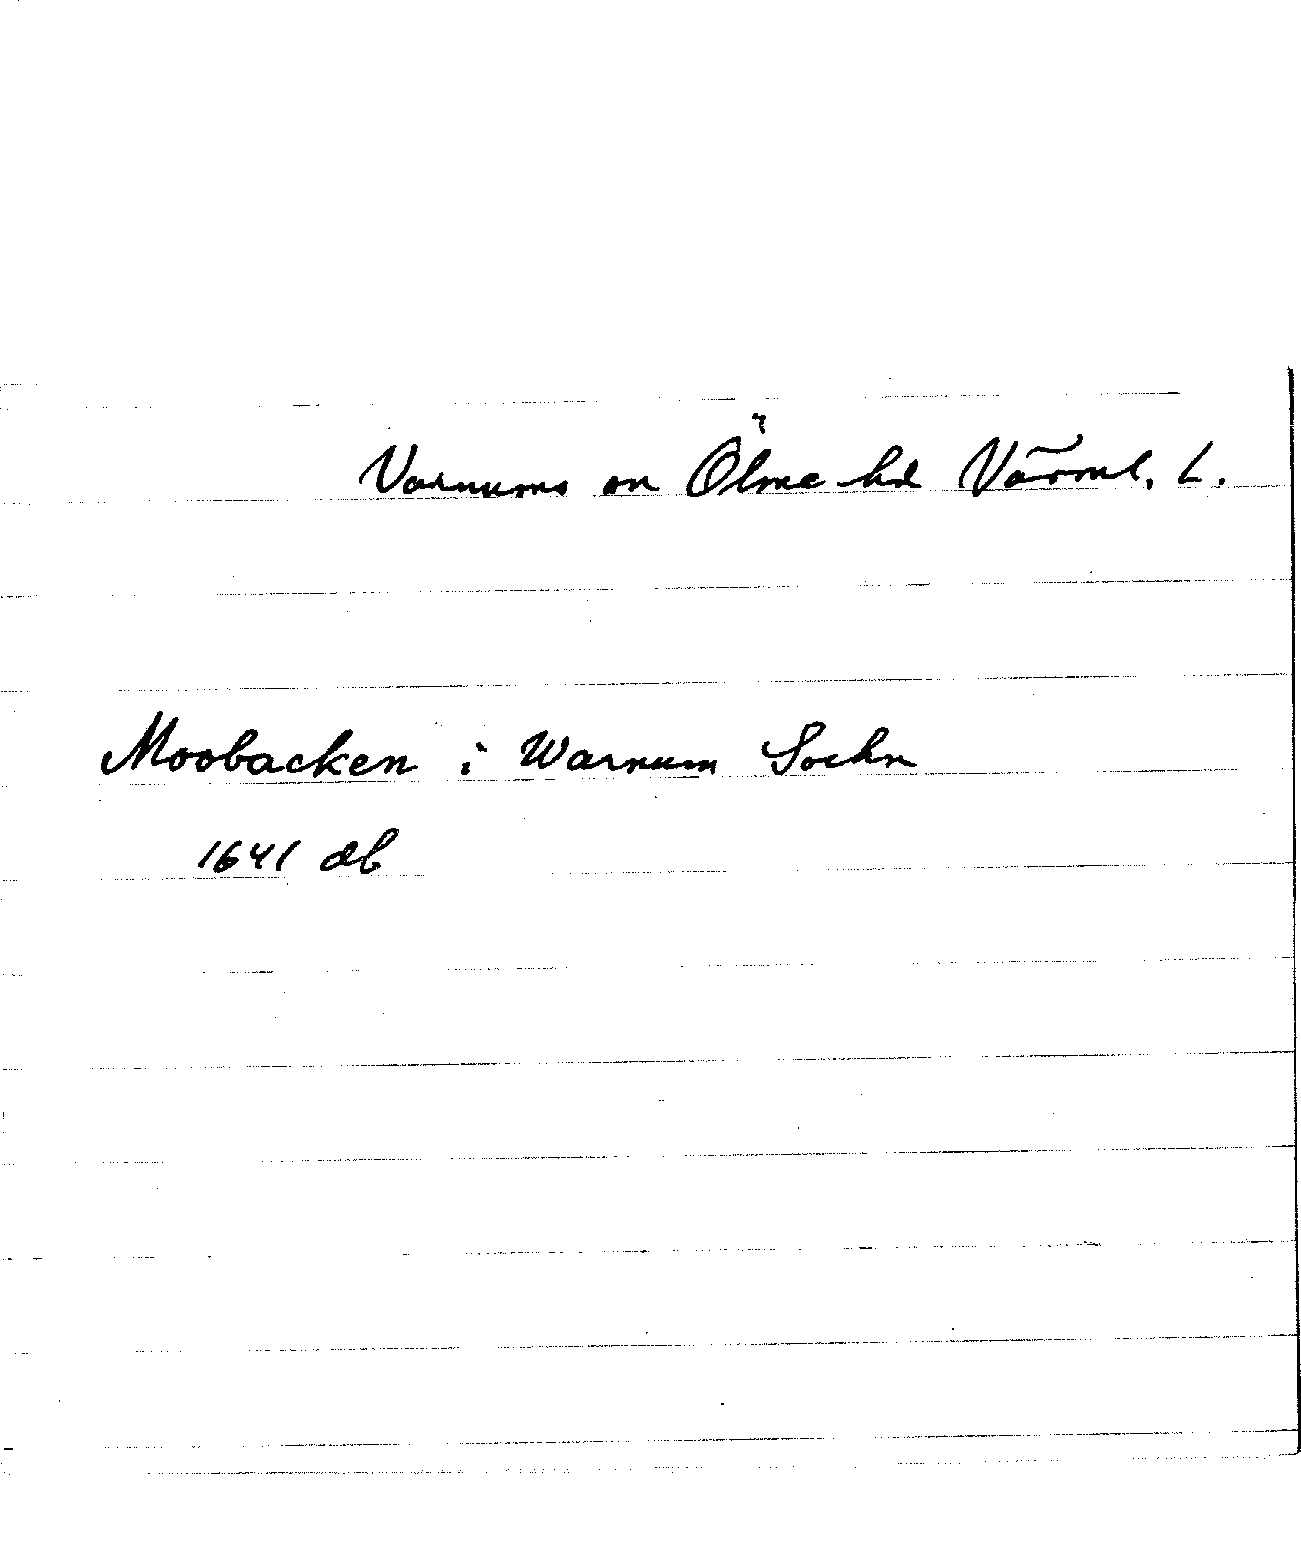 Varnums sn Ölme hd Värml. L.
Moobacken i Warnum Sochn
1641 db